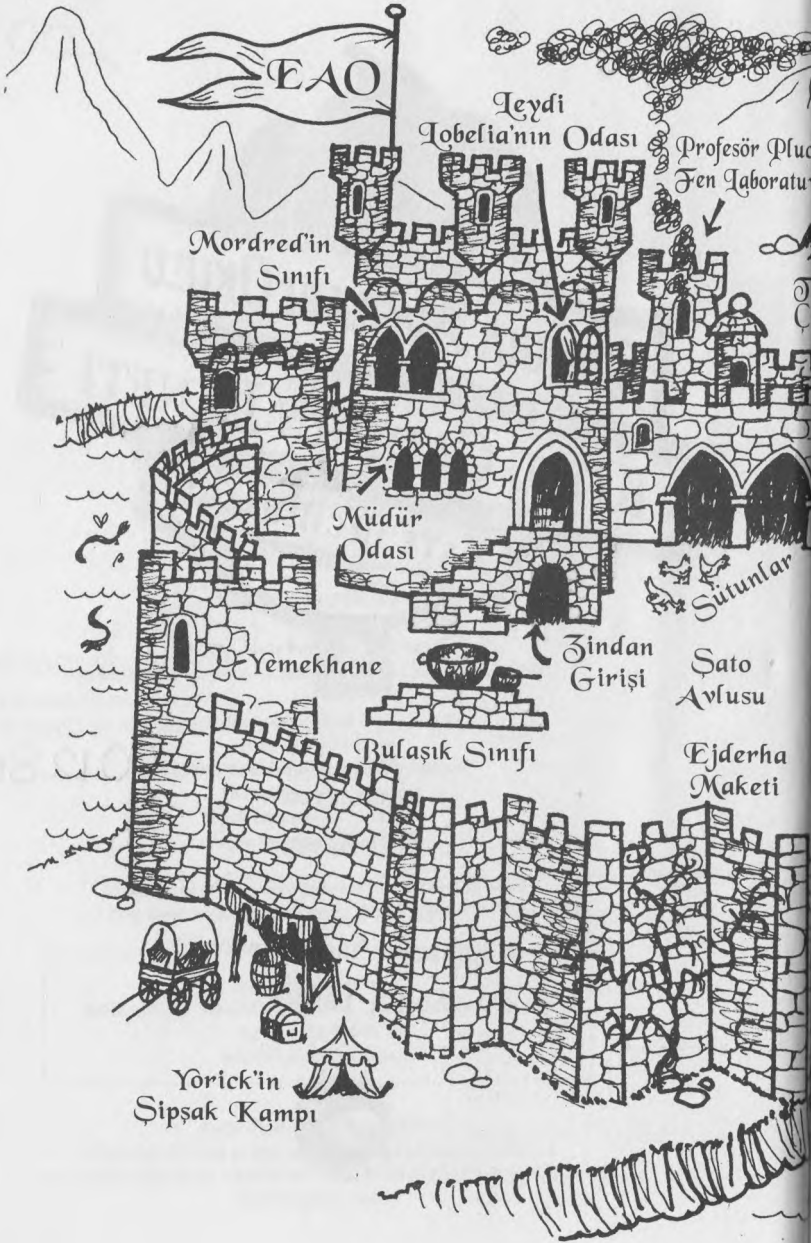 EAO
Leydi
Lobelia'nın Odası
Profesör
Fen
Mordred'in
Sınıfı
Müdür
Odası
Sütunlar
Zindan
Girişi
Yemekhane
Şato
Avlusu
Bulaşık Sınıfı
Ejderha
Maketi
Yorick'in
Şipşak Kampı